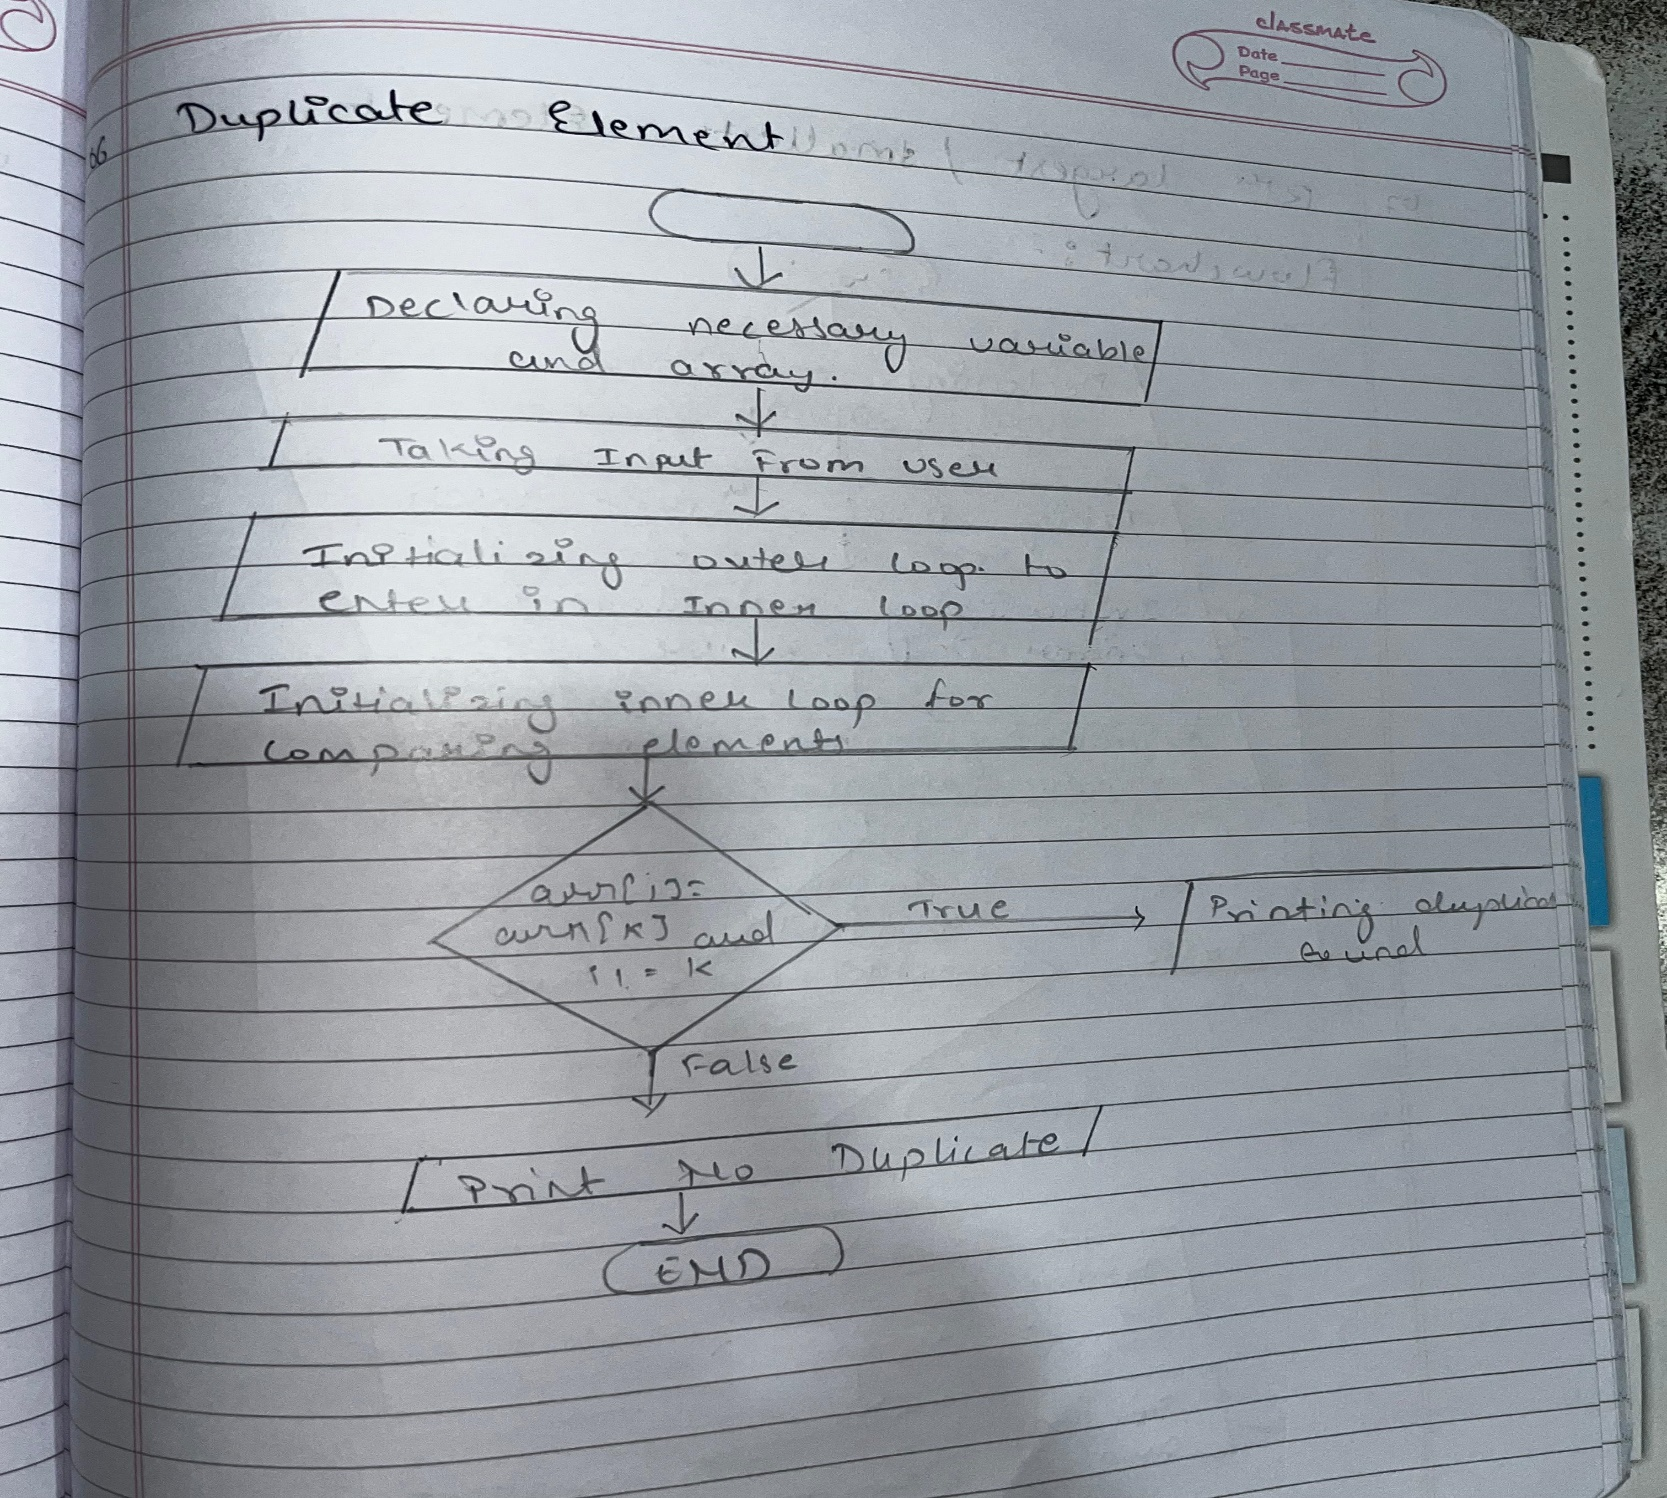 classmate
Date
Page
66
Duplicate Element
Declaring necessary variable
and array.
Taking Input From user
Initializing outer loop to
enter in Inner loop
Initializing inner loop for
comparing elements
arr[i]=
arr[k] and
i != k
True
Printing duplicate
found
False
Print No Duplicate
END